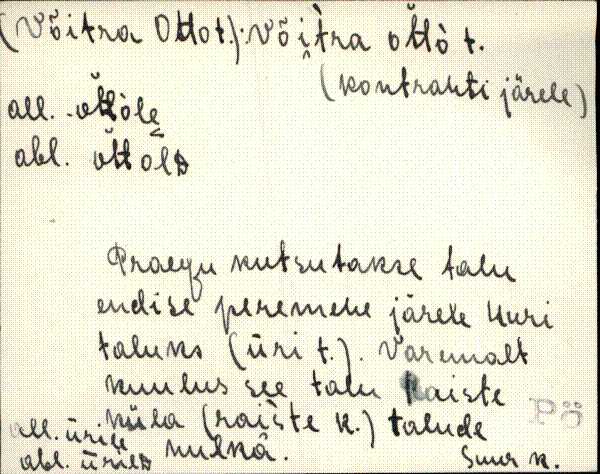 (Võitra Ottot.). Või̭tra ŏttò t.
(kontrahti järele)
all. ŏttòle
abl. ŏttòlᴅ
Praegu kutsutakse talu
endise peremehe järele Uuri
taluks (üri t.). Varemalt
kuulus see talu Raiste
küla (raìste k.) talude
all. ürile hulka.
abl. ürilᴅ Suur k.
Pö